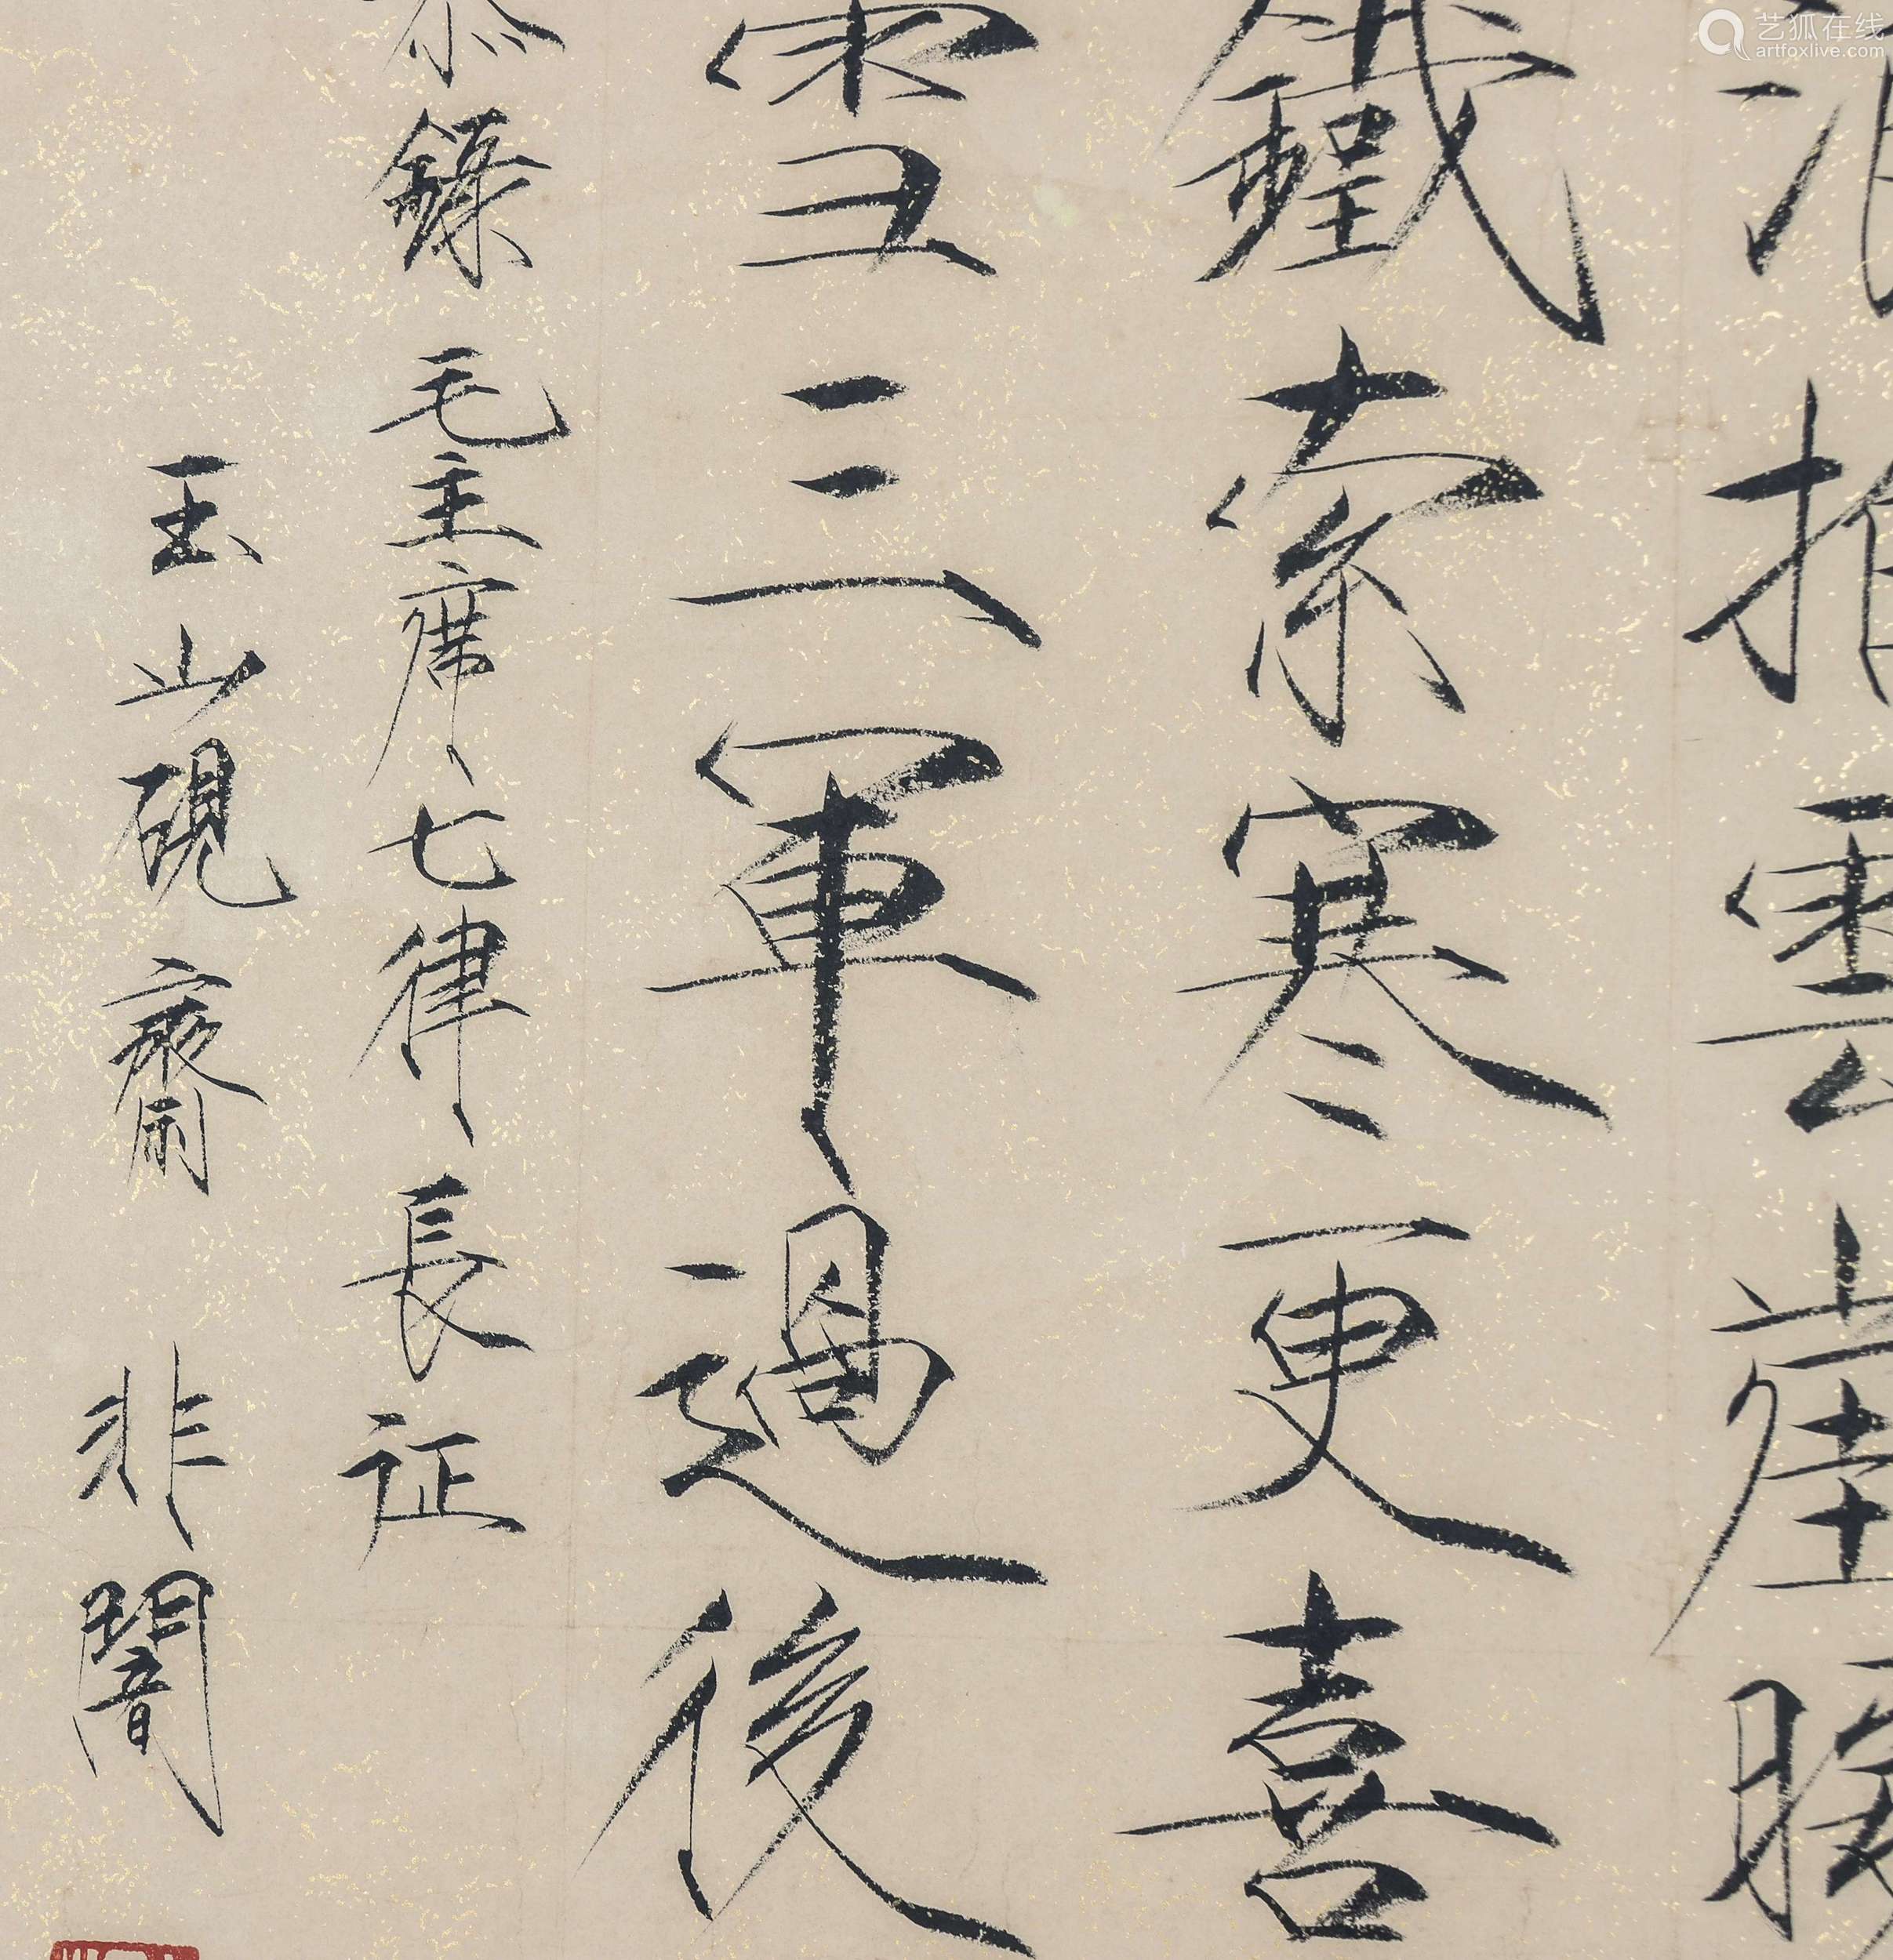 拍雲崖暖
鐵索寒更喜
雪三軍過後
恭錄 毛主席七律長征
玉山硯齋 非闇
艺狐在线
artfoxlive.com